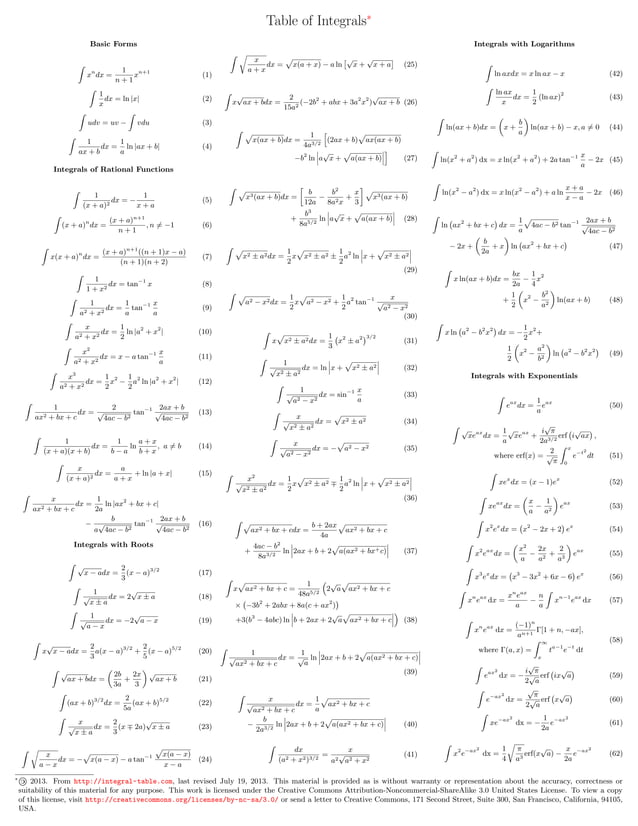 Table of Integrals*
Basic Forms
∫ xⁿ dx = 1/(n + 1) xⁿ⁺¹ (1)
∫ 1/x dx = ln |x| (2)
∫ udv = uv − ∫ vdu (3)
∫ 1/(ax + b) dx = 1/a ln |ax + b| (4)
Integrals of Rational Functions
∫ 1/(x + a)² dx = − 1/(x + a) (5)
∫ (x + a)ⁿ dx = (x + a)ⁿ⁺¹/(n + 1), n ≠ −1 (6)
∫ x(x + a)ⁿ dx = (x + a)ⁿ⁺¹((n + 1)x − a)/((n + 1)(n + 2)) (7)
∫ 1/(1 + x²) dx = tan⁻¹ x (8)
∫ 1/(a² + x²) dx = 1/a tan⁻¹ x/a (9)
∫ x/(a² + x²) dx = 1/2 ln |a² + x²| (10)
∫ x²/(a² + x²) dx = x − a tan⁻¹ x/a (11)
∫ x³/(a² + x²) dx = 1/2 x² − 1/2 a² ln |a² + x²| (12)
∫ 1/(ax² + bx + c) dx = 2/√(4ac − b²) tan⁻¹ (2ax + b)/√(4ac − b²) (13)
∫ 1/((x + a)(x + b)) dx = 1/(b − a) ln (a + x)/(b + x), a ≠ b (14)
∫ x/(x + a)² dx = a/(a + x) + ln |a + x| (15)
∫ x/(ax² + bx + c) dx = 1/2a ln |ax² + bx + c|
− b/(a√(4ac − b²)) tan⁻¹ (2ax + b)/√(4ac − b²) (16)
Integrals with Roots
∫ √(x − a) dx = 2/3 (x − a)^(3/2) (17)
∫ 1/√(x ± a) dx = 2√(x ± a) (18)
∫ 1/√(a − x) dx = −2√(a − x) (19)
∫ x√(x − a) dx = 2/3 a(x − a)^(3/2) + 2/5 (x − a)^(5/2) (20)
∫ √(ax + b) dx = (2b/3a + 2x/3) √(ax + b) (21)
∫ (ax + b)^(3/2) dx = 2/5a (ax + b)^(5/2) (22)
∫ x/√(x ± a) dx = 2/3 (x ∓ 2a)√(x ± a) (23)
∫ √(x/(a − x)) dx = −√(x(a − x)) − a tan⁻¹ √(x(a − x))/(x − a) (24)
∫ √(x/(a + x)) dx = √(x(a + x)) − a ln [√x + √(x + a)] (25)
∫ x√(ax + b) dx = 2/15a² (−2b² + abx + 3a²x²)√(ax + b) (26)
∫ √(x(ax + b)) dx = 1/4a^(3/2) [(2ax + b)√(ax(ax + b))
−b² ln |a√x + √(a(ax + b))|] (27)
∫ √(x³(ax + b)) dx = [b/12a − b²/8a²x + x/3] √(x³(ax + b))
+ b³/8a^(5/2) ln |a√x + √(a(ax + b))| (28)
∫ √(x² ± a²) dx = 1/2 x√(x² ± a²) ± 1/2 a² ln |x + √(x² ± a²)|
(29)
∫ √(a² − x²) dx = 1/2 x√(a² − x²) + 1/2 a² tan⁻¹ x/√(a² − x²)
(30)
∫ x√(x² ± a²) dx = 1/3 (x² ± a²)^(3/2) (31)
∫ 1/√(x² ± a²) dx = ln |x + √(x² ± a²)| (32)
∫ 1/√(a² − x²) dx = sin⁻¹ x/a (33)
∫ x/√(x² ± a²) dx = √(x² ± a²) (34)
∫ x/√(a² − x²) dx = −√(a² − x²) (35)
∫ x²/√(x² ± a²) dx = 1/2 x√(x² ± a²) ∓ 1/2 a² ln |x + √(x² ± a²)|
(36)
∫ √(ax² + bx + c) dx = (b + 2ax)/4a √(ax² + bx + c)
+ (4ac − b²)/8a^(3/2) ln |2ax + b + 2√(a(ax² + bx⁺c))| (37)
∫ x√(ax² + bx + c) = 1/48a^(5/2) (2√a√(ax² + bx + c)
× (−3b² + 2abx + 8a(c + ax²))
+3(b³ − 4abc) ln |b + 2ax + 2√a√(ax² + bx + c)|) (38)
∫ 1/√(ax² + bx + c) dx = 1/√a ln |2ax + b + 2√(a(ax² + bx + c))|
(39)
∫ x/√(ax² + bx + c) dx = 1/a √(ax² + bx + c)
− b/2a^(3/2) ln |2ax + b + 2√(a(ax² + bx + c))| (40)
∫ dx/(a² + x²)^(3/2) = x/(a²√(a² + x²)) (41)
Integrals with Logarithms
∫ ln ax dx = x ln ax − x (42)
∫ ln ax/x dx = 1/2 (ln ax)² (43)
∫ ln(ax + b) dx = (x + b/a) ln(ax + b) − x, a ≠ 0 (44)
∫ ln(x² + a²) dx = x ln(x² + a²) + 2a tan⁻¹ x/a − 2x (45)
∫ ln(x² − a²) dx = x ln(x² − a²) + a ln (x + a)/(x − a) − 2x (46)
∫ ln (ax² + bx + c) dx = 1/a √(4ac − b²) tan⁻¹ (2ax + b)/√(4ac − b²)
− 2x + (b/2a + x) ln (ax² + bx + c) (47)
∫ x ln(ax + b) dx = bx/2a − 1/4 x²
+ 1/2 (x² − b²/a²) ln(ax + b) (48)
∫ x ln (a² − b²x²) dx = −1/2 x²+
1/2 (x² − a²/b²) ln (a² − b²x²) (49)
Integrals with Exponentials
∫ e^(ax) dx = 1/a e^(ax) (50)
∫ √x e^(ax) dx = 1/a √x e^(ax) + i√π/2a^(3/2) erf (i√(ax)),
where erf(x) = 2/√π ∫₀ˣ e^(−t²) dt (51)
∫ xeˣ dx = (x − 1)eˣ (52)
∫ xe^(ax) dx = (x/a − 1/a²) e^(ax) (53)
∫ x²eˣ dx = (x² − 2x + 2) eˣ (54)
∫ x²e^(ax) dx = (x²/a − 2x/a² + 2/a³) e^(ax) (55)
∫ x³eˣ dx = (x³ − 3x² + 6x − 6) eˣ (56)
∫ xⁿe^(ax) dx = xⁿe^(ax)/a − n/a ∫ xⁿ⁻¹e^(ax) dx (57)
∫ xⁿe^(ax) dx = (−1)ⁿ/aⁿ⁺¹ Γ[1 + n, −ax],
where Γ(a, x) = ∫ₓ^∞ t^(a−1)e^(−t) dt (58)
∫ e^(ax²) dx = − i√π/2√a erf (ix√a) (59)
∫ e^(−ax²) dx = √π/2√a erf (x√a) (60)
∫ xe^(−ax²) dx = − 1/2a e^(−ax²) (61)
∫ x²e^(−ax²) dx = 1/4 √(π/a³) erf(x√a) − x/2a e^(−ax²) (62)
* 2013. From http://integral-table.com, last revised July 19, 2013. This material is provided as is without warranty or representation about the accuracy, correctness or
suitability of this material for any purpose. This work is licensed under the Creative Commons Attribution-Noncommercial-ShareAlike 3.0 United States License. To view a copy
of this license, visit http://creativecommons.org/licenses/by-nc-sa/3.0/ or send a letter to Creative Commons, 171 Second Street, Suite 300, San Francisco, California, 94105,
USA.